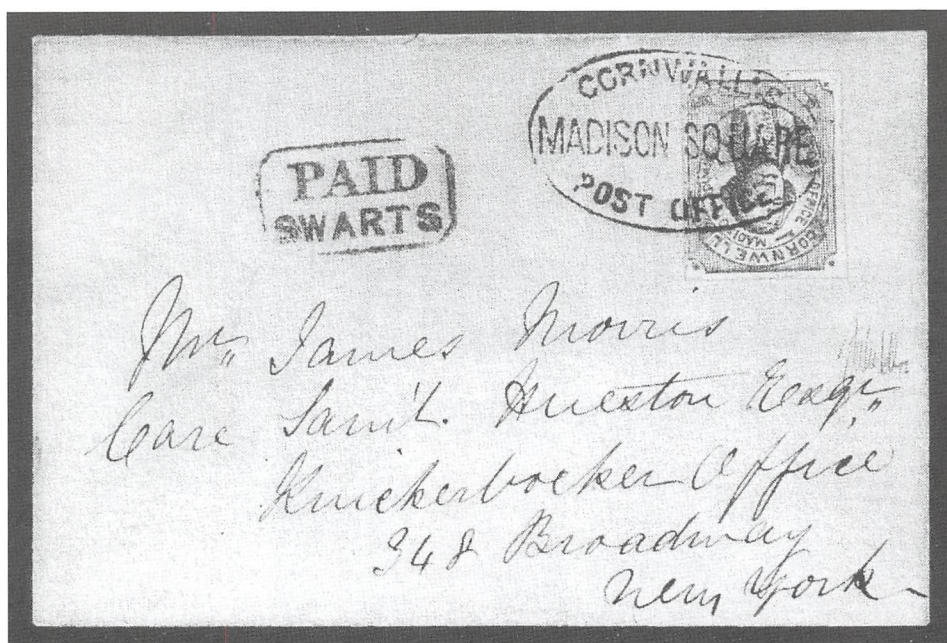 CORNWALL'S
MADISON SQUARE
POST OFFICE
PAID
SWARTS
POST OFFICE
CORNWELL
MADI
Mr,, James Morris
Care Sam'l. Hueston Esqr,,
Knickerbocker Office
348 Broadway
New York